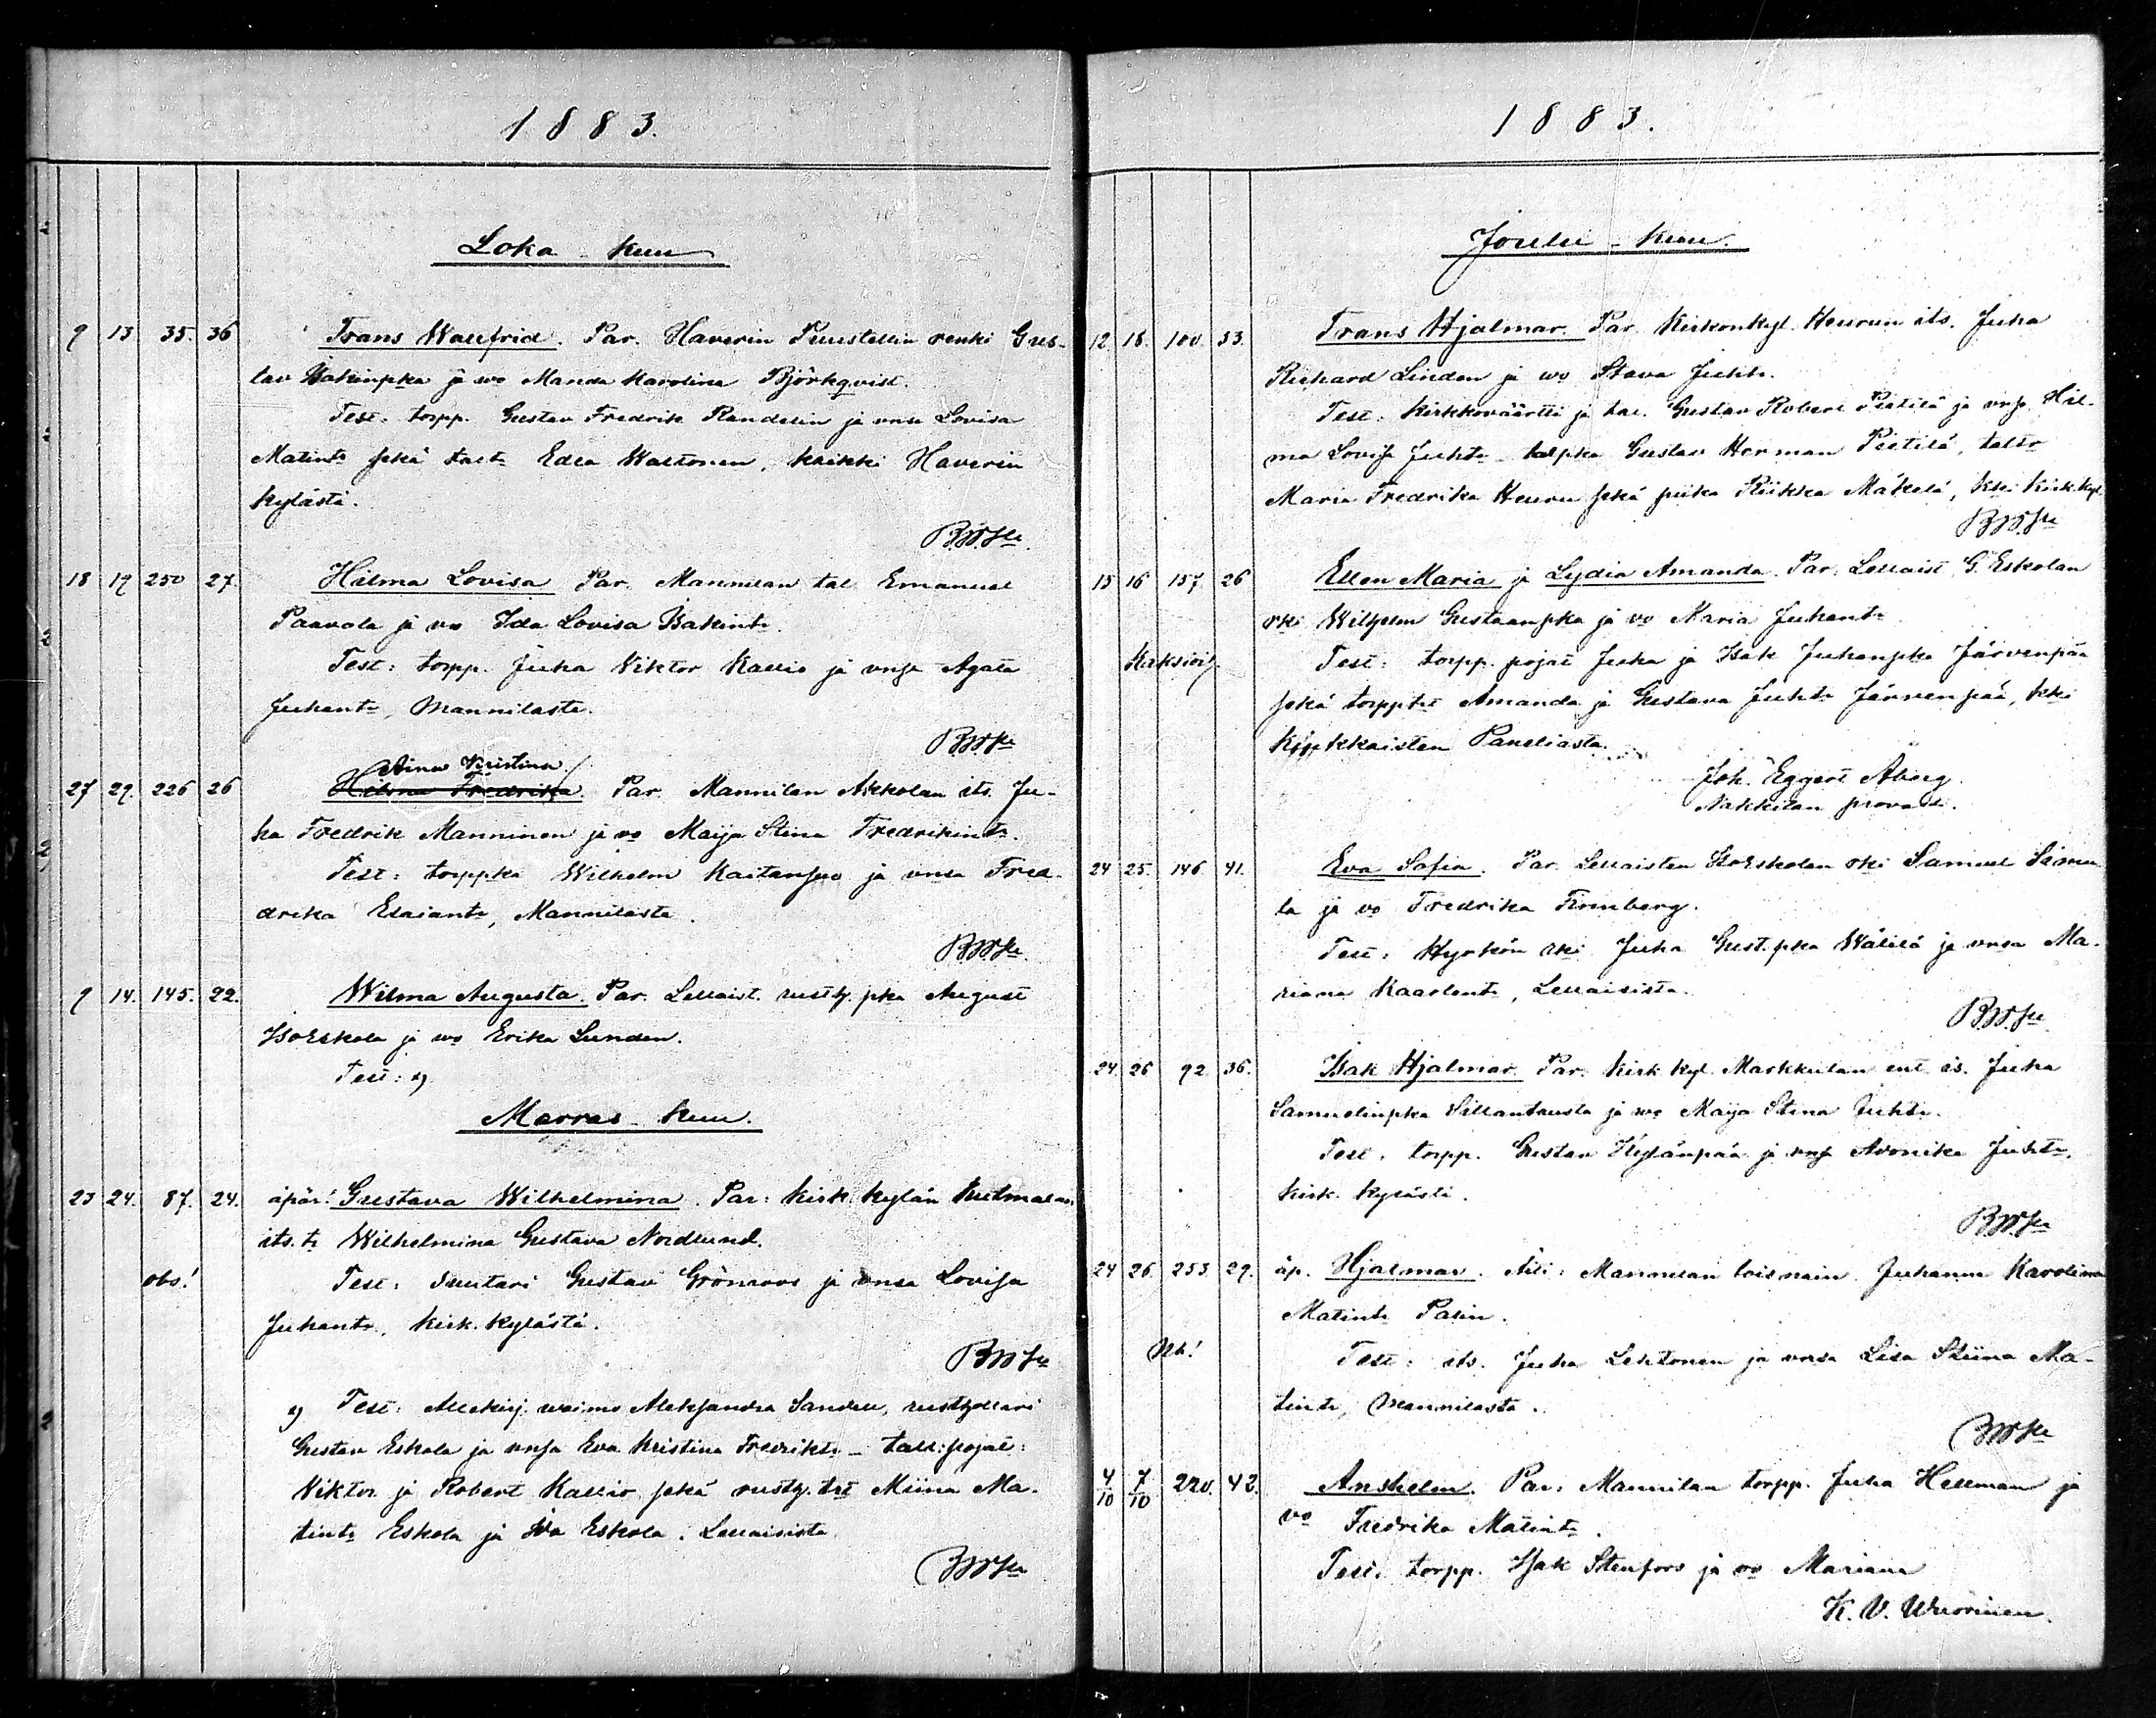 1883.
Loka kuu
9 13 35. 36 Frans Wallfrid. Par. Haverin Puustellin renki Gus-
tav Isakinpka ja wo Manda Karolina Björkqvist.
Test. torpp. Gustav Fredrik Randelin ja vnsa Lovisa
Matint. sekä talt. Edla Waltonen, kaikki Haverin
kylästä.
18 19 250 27. Hilma Lovisa Par. Mannilan tal. Emanuel
Paavola ja vo Ida Lovisa Isakint.
Test: torpp. Juha Viktor Kallio ja vnsa Agata
Juhant., Mannilasta.
Aina Kristina
27 29. 226 26 Hilma Fredrika Par. Mannilan Mikkolan its. Ju-
ha Fredrik Manninen ja vo Maija Stina Fredrikint.
Test: torppka Wilhelm Kaitansuo ja vnsa Fred-
drika Esaiant., Mannilasta.
9 14. 145. 22. Wilma Augusta. Par. Lellaist. rusth. pka August
IsoEskola ja wo Erika Lunden.
Test: x)
Marras kuu.
23 24. 87. 24. äpär! Gustava Wilhelmina. Par: Kirk. kylän
its. t. Wilhelmina Gustava Nordlund.
obs! Test: Suutari Gustav Grönroos ja vnsa Lovisa
Juhant., Kirk. kylästä.
x) Test: waimo Aleksandra Sandell, rusthollari
Gustav Eskola ja vnsa Eva Kristina Fredrikt. - tall: pojat:
Viktor ja Robert Kallio sekä rusth. trt Miina Ma-
tint. Eskola ja Ida Eskola. Lellaisista
1883.
Joulu-kuu.
12. 18. 100. 33. Frans Hjalmar. Par. Kirkonkyl. Heurun its. Juha
Richard Linden ja wo Stava Juht.
Test: Kirkkoväärtti ja tal. Gustav Robert Pietilä ja vnsa Hil-
ma Lovisa Juht. - talpka Gustav Herman Pietilä, taltr
Maria Fredrika Heuru sekä piika Riikka Mäkelä, kki Kirk. kyl.
15 16 157. 26 Ellen Maria ja Lydia Amanda. Par. Lellaist. G. Eskolan
rki Wilhelm Gustaanpka ja vo Maria Juhant.
Kaksois. Test: torpp. pojat Juha ja Isak Juhanpka Järvenpää
sekä torpptrt Amanda ja Gustava Juht. Järvenpää, kki
Paneliasta.
Joh. Eggert Åberg.
Nakkilan provasti.
24 25. 146. 41. Eva Sofia. Par. Lellaisten IsoEskolan rki Samuel Simu-
la ja vo Fredrika Finnberg.
Test: Hyrkön rki Juha Gust.pka Wälilä ja vnsa Ma-
riana Kaarlent., Lellaisista.
24. 26 92. 36. Isak Hjalmar. Par. Kirk. kyl. Markkulan ent. is. Juha
Samuelinpka Sillantausta ja wo Maija Stina Juht.
Test. torpp. Gustav Kylänpää ja vnsa Juht.
kirk. kylästä.
24 26. 253. 29. äp. Hjalmar. Äiti: Mannilan loisnain. Juhanna Karolina
Matint. Palin.
Nb! Test: its. Juha Lehtonen ja vnsa Lisa Stiina Ma-
tint., Mannilasta.
4/10 7/10 220. 42. Anshelm. Par: Mannilan torpp. Juha Hellman ja
vo Fredrika Matint.
Test. torpp. Isak Stenfors ja vo Mariana
K. V. Wuorinen.